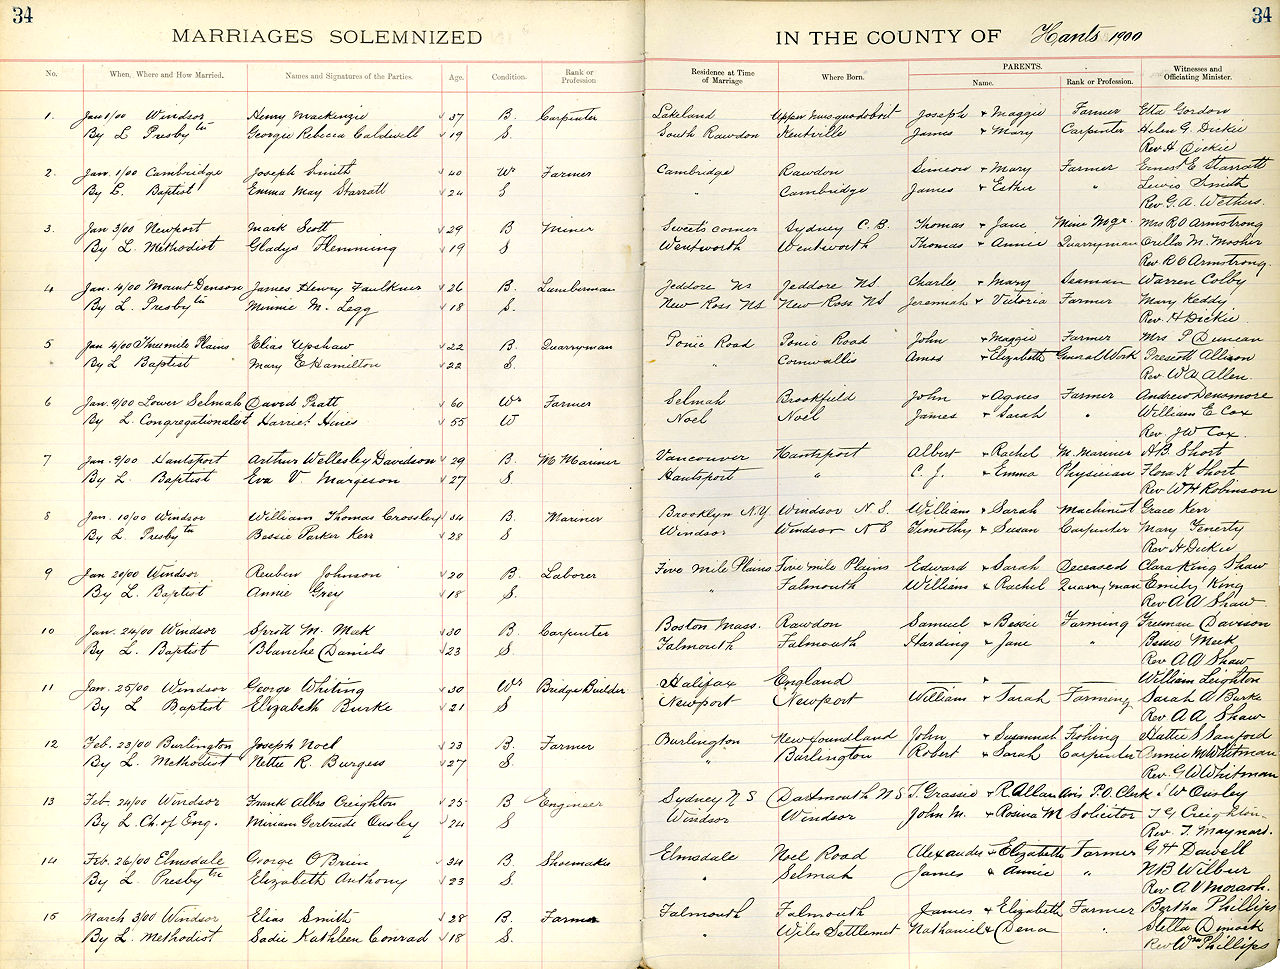 34 34
MARRIAGES SOLEMNIZED IN THE COUNTY OF Hants 1900
No. When, Where and How Married. Names and Signatures of the Parties. Age. Condition. Rank or Profession Residence at Time of Marriage Where Born. PARENTS. Name. Rank or Profession. Witnesses and Officiating Minister.
1. Jan 1/00 Windsor Henry Mackenzie 37 B. Carpenter Lakeland Upper Musquodoboit Joseph + Maggie Farmer Etta Gordon
By L Presbytin Georgie Rebecca Caldwell 19 S. South Rawdon Kentville James + Mary Carpenter Helen G. Dickie
Rev H Dickie
2. Jan. 1/00 Cambridge Joseph Smith 40 Wr Farmer Cambridge Rawdon Simeon + Mary Farmer Ernest E Starratt
By L. Baptist Emma May Starratt 24 S " Cambridge James + Esther " Lewis Smith
Rev. G. A. Wethers.
3 Jan 3/00 Newport Mark Scott 29 B Miner Sweets corner Sydney C. B. Thomas + Jane Mine Mgr. Mrs R O Armstrong
By L. Methodist Gladys Flemming 19 S. Wentworth Wentworth Thomas + Annie Quarryman Orella M. Mosher
Rev. R O Armstrong.
4 Jan. 4/00 Mount Denson James Henry Faulkner 26 B. Lumberman Jeddore NS Jeddore NS Charles + Mary Seaman Warren Colby
By L. Presbytin Minnie M. Legg 18 S. New Ross NS New Ross NS Jeremiah + Victoria Farmer Mary Keddy
Rev. H Dickie
5 Jan 4/00 Three mile Plains Elias Upshaw 22 B. Quarryman Ponic Road Ponic Road John + Maggie Farmer Mrs P Duncan
By L Baptist Mary E Hamilton 22 S. " Cornwallis Amos + Elizabeth General Work Prescott Allison
Rev W A Allen
6 Jan. 9/00 Lower Selmah David Pratt 60 Wr Farmer Selmah Brookfield John + Agnes Farmer Andrew Densmore
By L. Congregationalist Harriet Hines 55 W Noel Noel James + Sarah " William E Cox
Rev. J W Cox.
7 Jan. 9/00 Hantsport Arthur Wellesley Davidson 29 B. M Mariner Vancouver Hantsport Albert + Rachel M. Mariner H B. Short
By L. Baptist Eva V Margeson 27 S Hantsport " C. J. + Emma Physician Flora K Short
Rev W H Robinson
8 Jan. 10/00 Windsor William Thomas Crossley 34 B. Mariner Brooklyn N.Y. Windsor N. S. William + Sarah Machinist Grace Kerr
By L. Presbytn Bessie Parker Kerr 28 S. Windsor Windsor N S Timothy + Susan Carpenter Mary Fenerty
Rev H Dickie
9 Jan 20/00 Windsor Reuben Johnson 20 B. Laborer Five mile Plains Five mile Plains Edward + Sarah Deceased Clara King Shaw
By L. Baptist Annie Grey 18 S. " Falmouth William + Rachel Quarryman Emily King
Rev A A Shaw
10 Jan. 24/00 Windsor Sprott M. Mak 30 B. Carpenter Boston Mass. Rawdon Samuel + Bessie Farming Freeman Davison
By L. Baptist Blanche Daniels 23 S Falmouth Falmouth Harding + Jane " Bessie Meek
Rev A A Shaw
11 Jan. 25/00 Windsor George Whiting 30 Wr Bridge Builder Halifax England — + — — William Leighton
By L Baptist Elizabeth Burke 21 S Newport Newport William + Sarah Farming Sarah A Burke
Rev A A Shaw
12 Feb. 23/00 Burlington Joseph Noel 23 B. Farmer Burlington Newfoundland John + Susannah Fishing Hattie S Sanford
By L. Methodist Nettie R. Burgess 27 S. " Burlington Robert + Sarah Carpenter Annie M Whitman
Rev. G W Whitman
13 Feb. 24/00 Windsor Frank Albro Creighton 25 B Engineer Sydney N S Dartmouth N S T. Grassie + R Allan Avis P.O. Clerk J W Ousley
By L. Ch. of Eng. Miriam Gertrude Ousley 24 S. Windsor Windsor John M. + Rosina M Solicitor T G Creighton
Rev. T. Maynard.
14 Feb. 26/00 Elmsdale George O'Brien 34 B. Shoemaker Elmsdale Noel Road Alexander + Elizabeth Farmer G H Dowell
By L. Presbytn Elizabeth Anthony 23 S. " Selmah James + Annie " N B Wilbur
Rev A V Morash.
15 March 3/00 Windsor Elias Smith 28 B. Farmer Falmouth Falmouth James + Elizabeth Farmer Bertha Phillips
By L. Methodist Sadie Kathleen Conrad 18 S. " Wiles Settlemet Nathaniel + Dena " Stella Dimock
Rev Wm Phillips